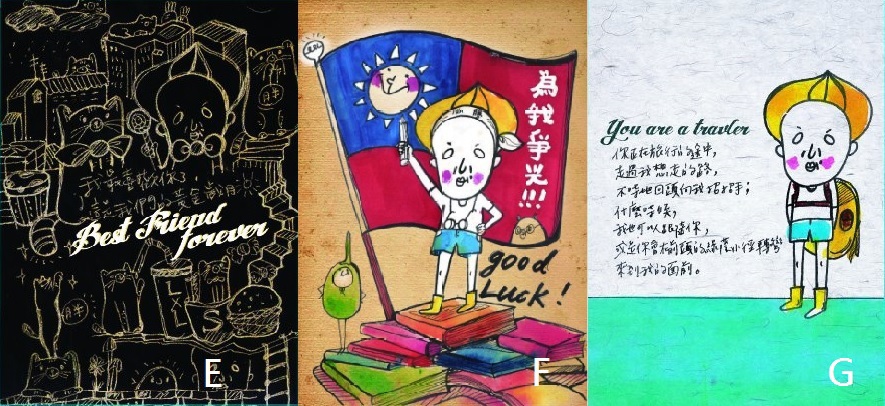 Best Friend
forever
E
為我爭光!!!
good
Luck!
F
You are a travler
你正在旅行的途中,
走過我想走的路,
不時地回頭向我招手;
什麼時候,
我也可以跟隨你,
你會在前頭的小徑轉彎
來到我的面前。
G